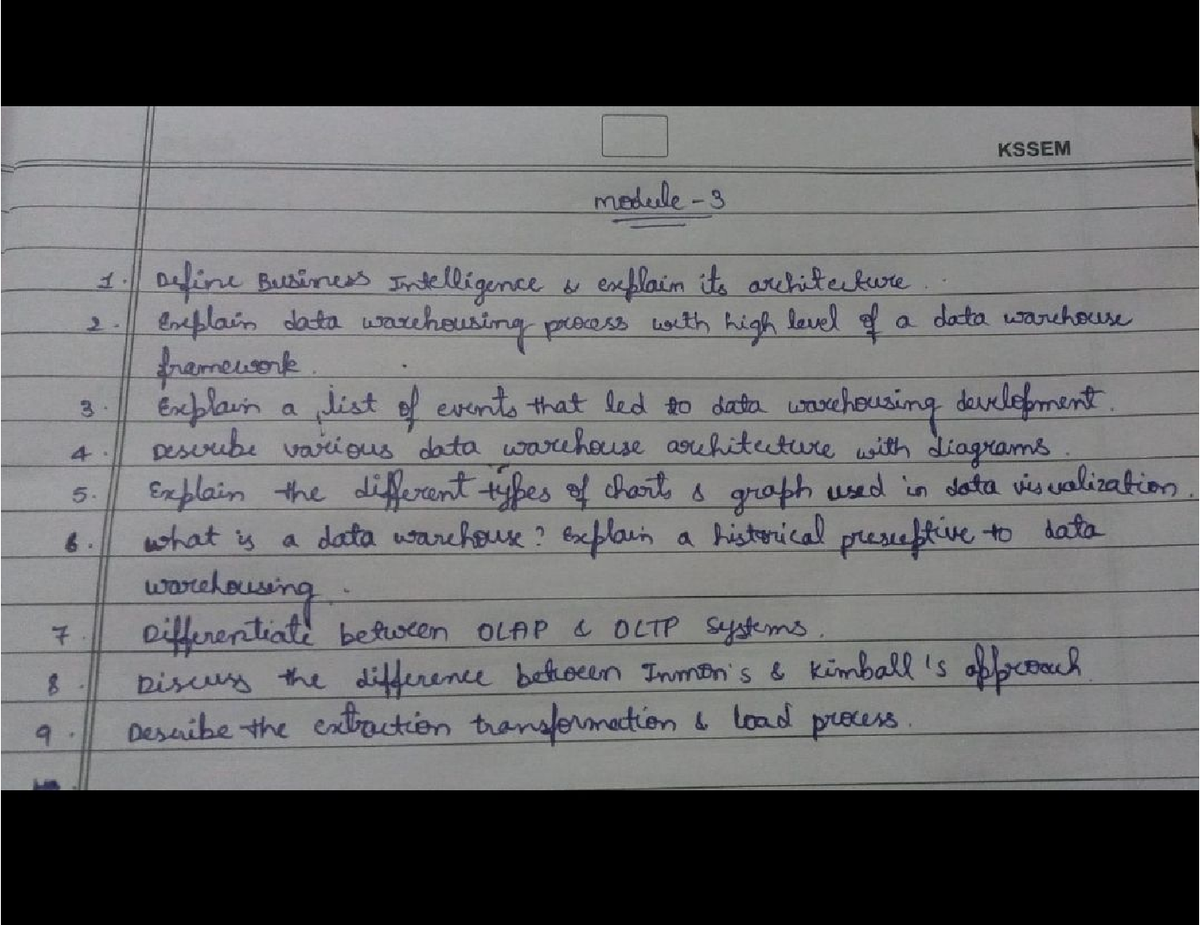 KSSEM
module - 3
1. Define Business Intelligence & explain its architecture.
2. Explain data warehousing process with high level of a data warehouse
framework.
3. Explain a list of events that led to data warehousing development.
4. Describe various data warehouse architecture with diagrams.
5. Explain the different types of charts & graph used in data visualization.
6. what is a data warehouse? Explain a historical preseptive to data
warehousing.
7. Differentiate between OLAP & OLTP Systems.
8. Discuss the difference between Inmon's & Kimball's approach.
9. Describe the extraction transformation & load process.